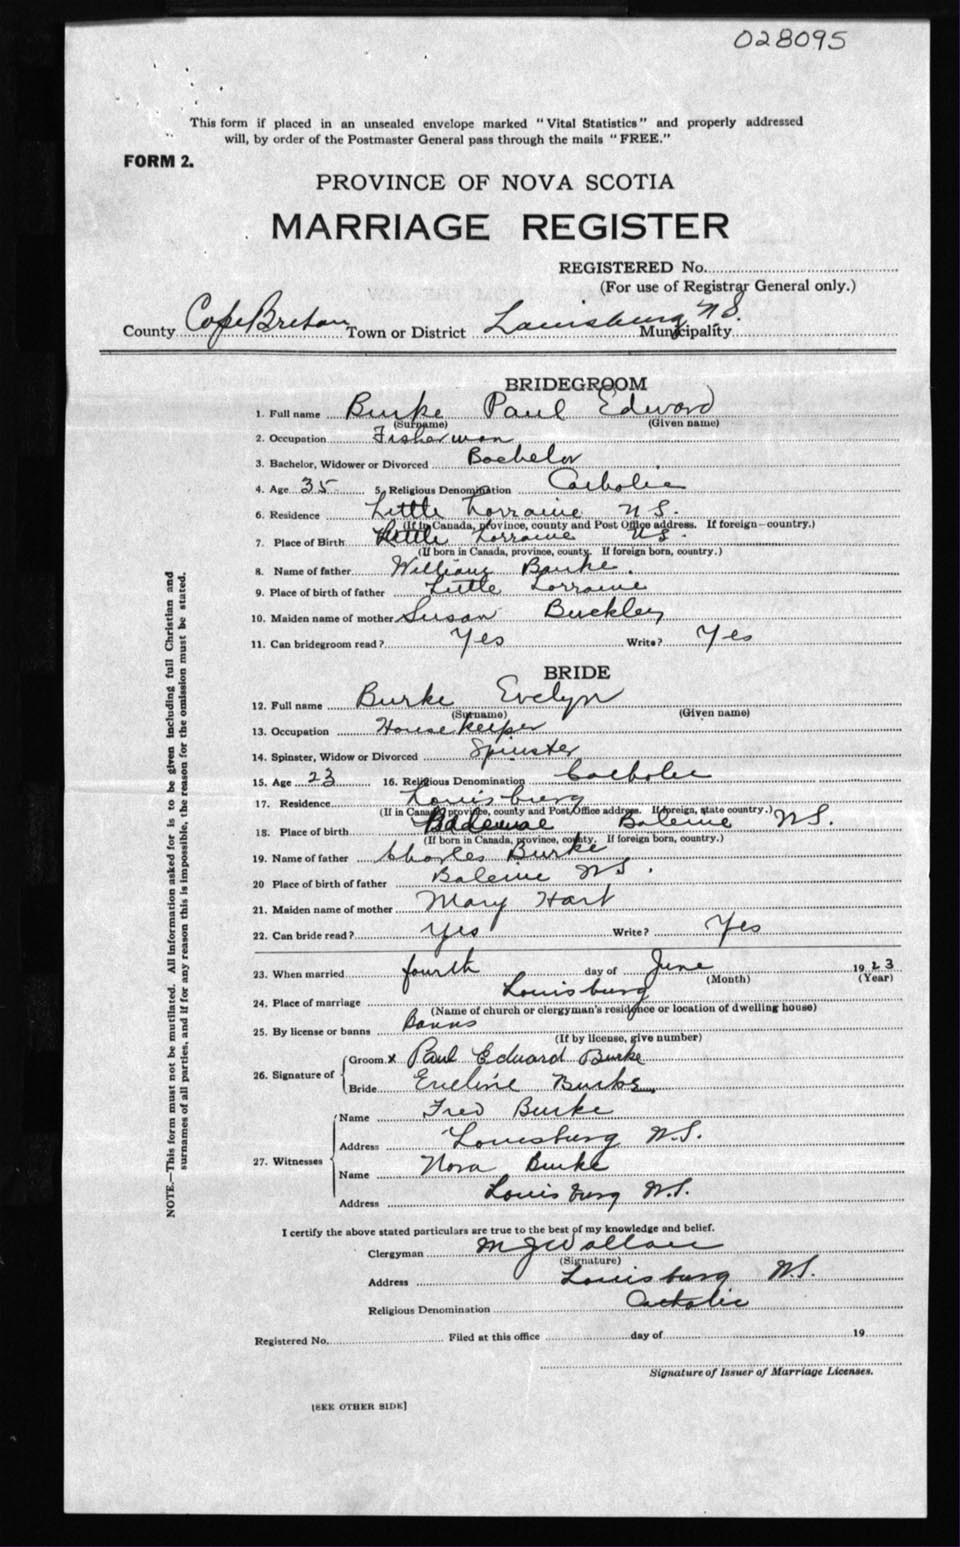 028095
This form if placed in an unsealed envelope marked "Vital Statistics" and properly addressed
will, by order of the Postmaster General pass through the mails "FREE."
FORM 2.
PROVINCE OF NOVA SCOTIA
MARRIAGE REGISTER
REGISTERED No.
(For use of Registrar General only.)
County Cape Breton Town or District Louisburg N S. Municipality
BRIDEGROOM
1. Full name Burke Paul Edward
(Surname) (Given name)
2. Occupation Fisherman
3. Bachelor, Widower or Divorced Bachelor
4. Age 35 5. Religious Denomination Catholic
6. Residence Little Lorraine N S.
(If in Canada, province, county and Post Office address. If foreign—country.)
7. Place of Birth Little Lorraine N S.
(If born in Canada, province, county. If foreign born, country.)
8. Name of father William Burke.
9. Place of birth of father Little Lorraine
10. Maiden name of mother Susan Buckley
11. Can bridegroom read? Yes Write? Yes
BRIDE
12. Full name Burke Evelyn
(Surname) (Given name)
13. Occupation Housekeeper
14. Spinster, Widow or Divorced Spinster
15. Age 23 16. Religious Denomination Catholic
17. Residence Louisburg
(If in Canada, province, county and Post Office address. If foreign, state country.)
18. Place of birth Baleine N S.
(If born in Canada, province, county. If foreign born, country.)
19. Name of father Charles Burke
20 Place of birth of father Baleine N S.
21. Maiden name of mother Mary Hart
22. Can bride read? Yes Write? Yes
23. When married fourth day of June 1923
(Month) (Year)
24. Place of marriage Louisburg
(Name of church or clergyman's residence or location of dwelling house)
25. By license or banns Banns
(If by license, give number)
26. Signature of Groom x Paul Edward Burke
Bride Eveline Burke
27. Witnesses Name Fred Burke
Address Louisburg N.S.
Name Nora Burke
Address Louisburg N.S.
I certify the above stated particulars are true to the best of my knowledge and belief.
Clergyman M J Wallace
(Signature)
Address Louisburg N.S.
Religious Denomination Catholic
Registered No. Filed at this office day of 19
Signature of Issuer of Marriage Licenses.
[SEE OTHER SIDE]
NOTE.—This form must not be mutilated. All information asked for is to be given including full Christian and
surnames of all parties, and if for any reason this is impossible, the reason for the omission must be stated.